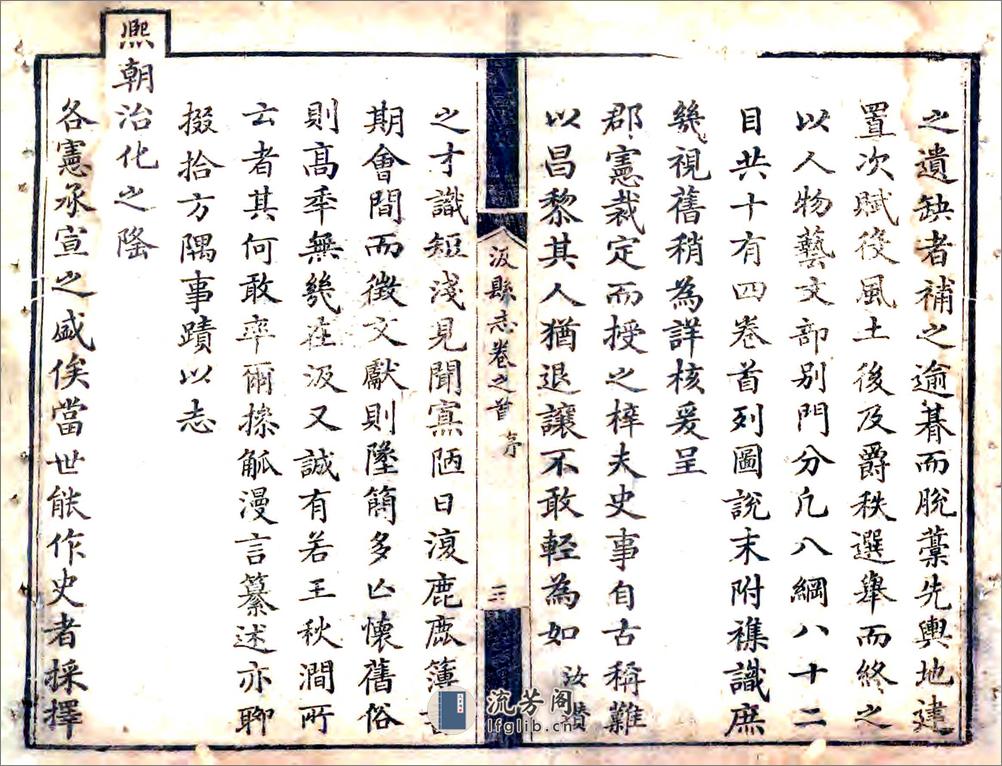 之遺缺者補之逾朞而脫藁先輿地建
置次賦役風土後及爵秩選舉而終之
以人物藝文部別門分凢八綱八十二
目共十有四卷首列圖說末附襍識庶
幾視舊稍為詳核爰呈
郡憲裁定而授之梓夫史事自古稱難
以昌黎其人猶退讓不敢輕為如汝讚
汲縣志卷之首 序 三
之才識短淺見聞寡陋日鹿鹿簿書
期會間而徵文獻則墜簡多亡懷舊俗
則高秊無幾在汲又誠有若王秋澗所
云者其何敢率爾操觚漫言纂述亦聊
掇拾方隅事蹟以志
熈朝治化之隆
各憲承宣之盛俟當世能作史者採擇
流芳阁
lfglib.cn